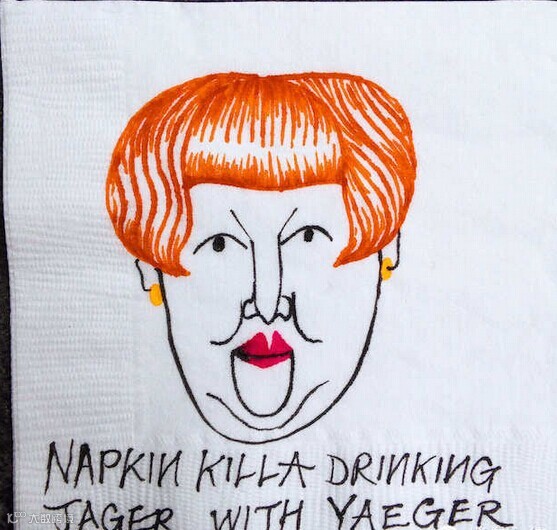 NAPKIN KILLA DRINKING
JAGER WITH YAEGER